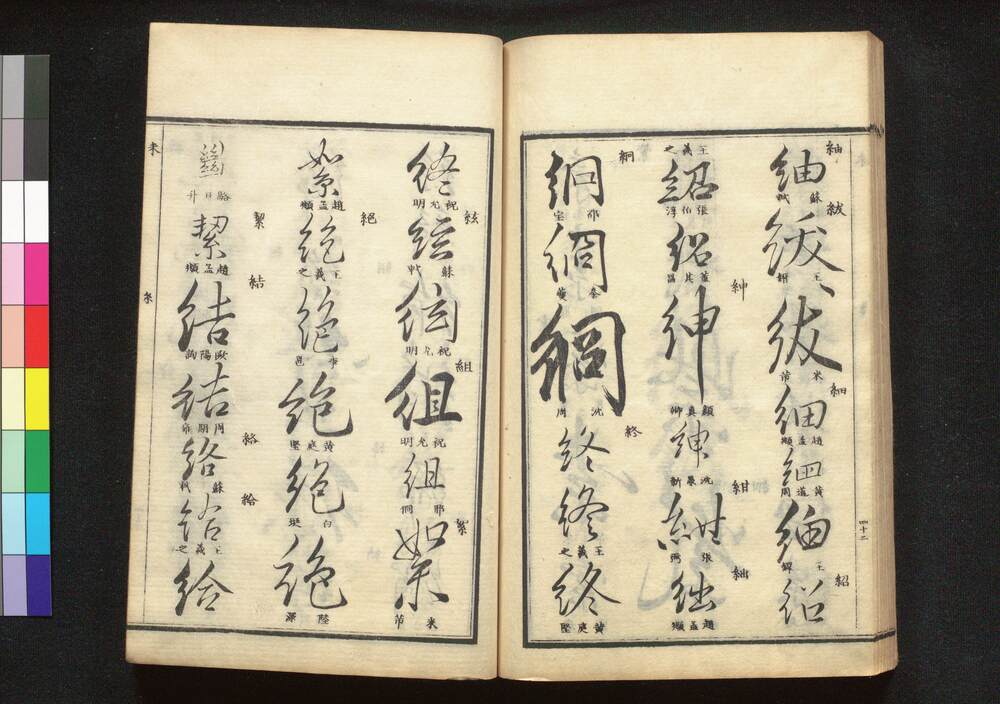 紬
紬
蘇軾
紱
紱
王鐸
紱
米芾
細
細
趙孟頫
細
黄道周
細
王鐸
紹
紹
王羲之
紹
張伯淳
紹
董其昌
紳
紳
顔真卿
紳
紺
紺
張弼
絀
絀
趙孟頫
絅
絅
絅
絅
沈周
終
終
終
王羲之
終
黄庭堅
四十二
終
祝允明
絃
絃
蘇軾
絃
祝允明
組
組
祝允明
組
邢侗
絮
絮
米芾
絮
趙孟頫
絕
絕
王羲之
絕
李邕
絕
黄庭堅
絕
白珽
絕
陸深
駱日升
絜
絜
趙孟頫
結
結
歐陽詢
結
絡
絡
蘇軾
給
給
王羲之
給